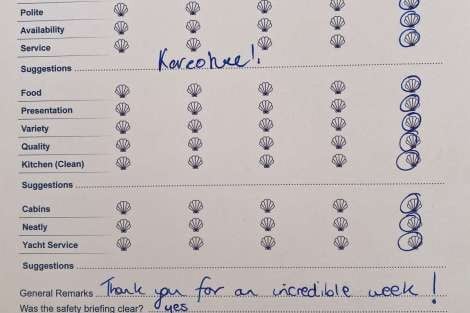 Polite
Availability
Service
Suggestions Kareokee!
Food
Presentation
Variety
Quality
Kitchen (Clean)
Suggestions
Cabins
Neatly
Yacht Service
Suggestions
General Remarks Thank you for an incredible week!
Was the safety briefing clear? yes